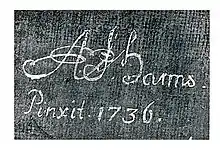 AFHarms.
Pinxit: 1736.